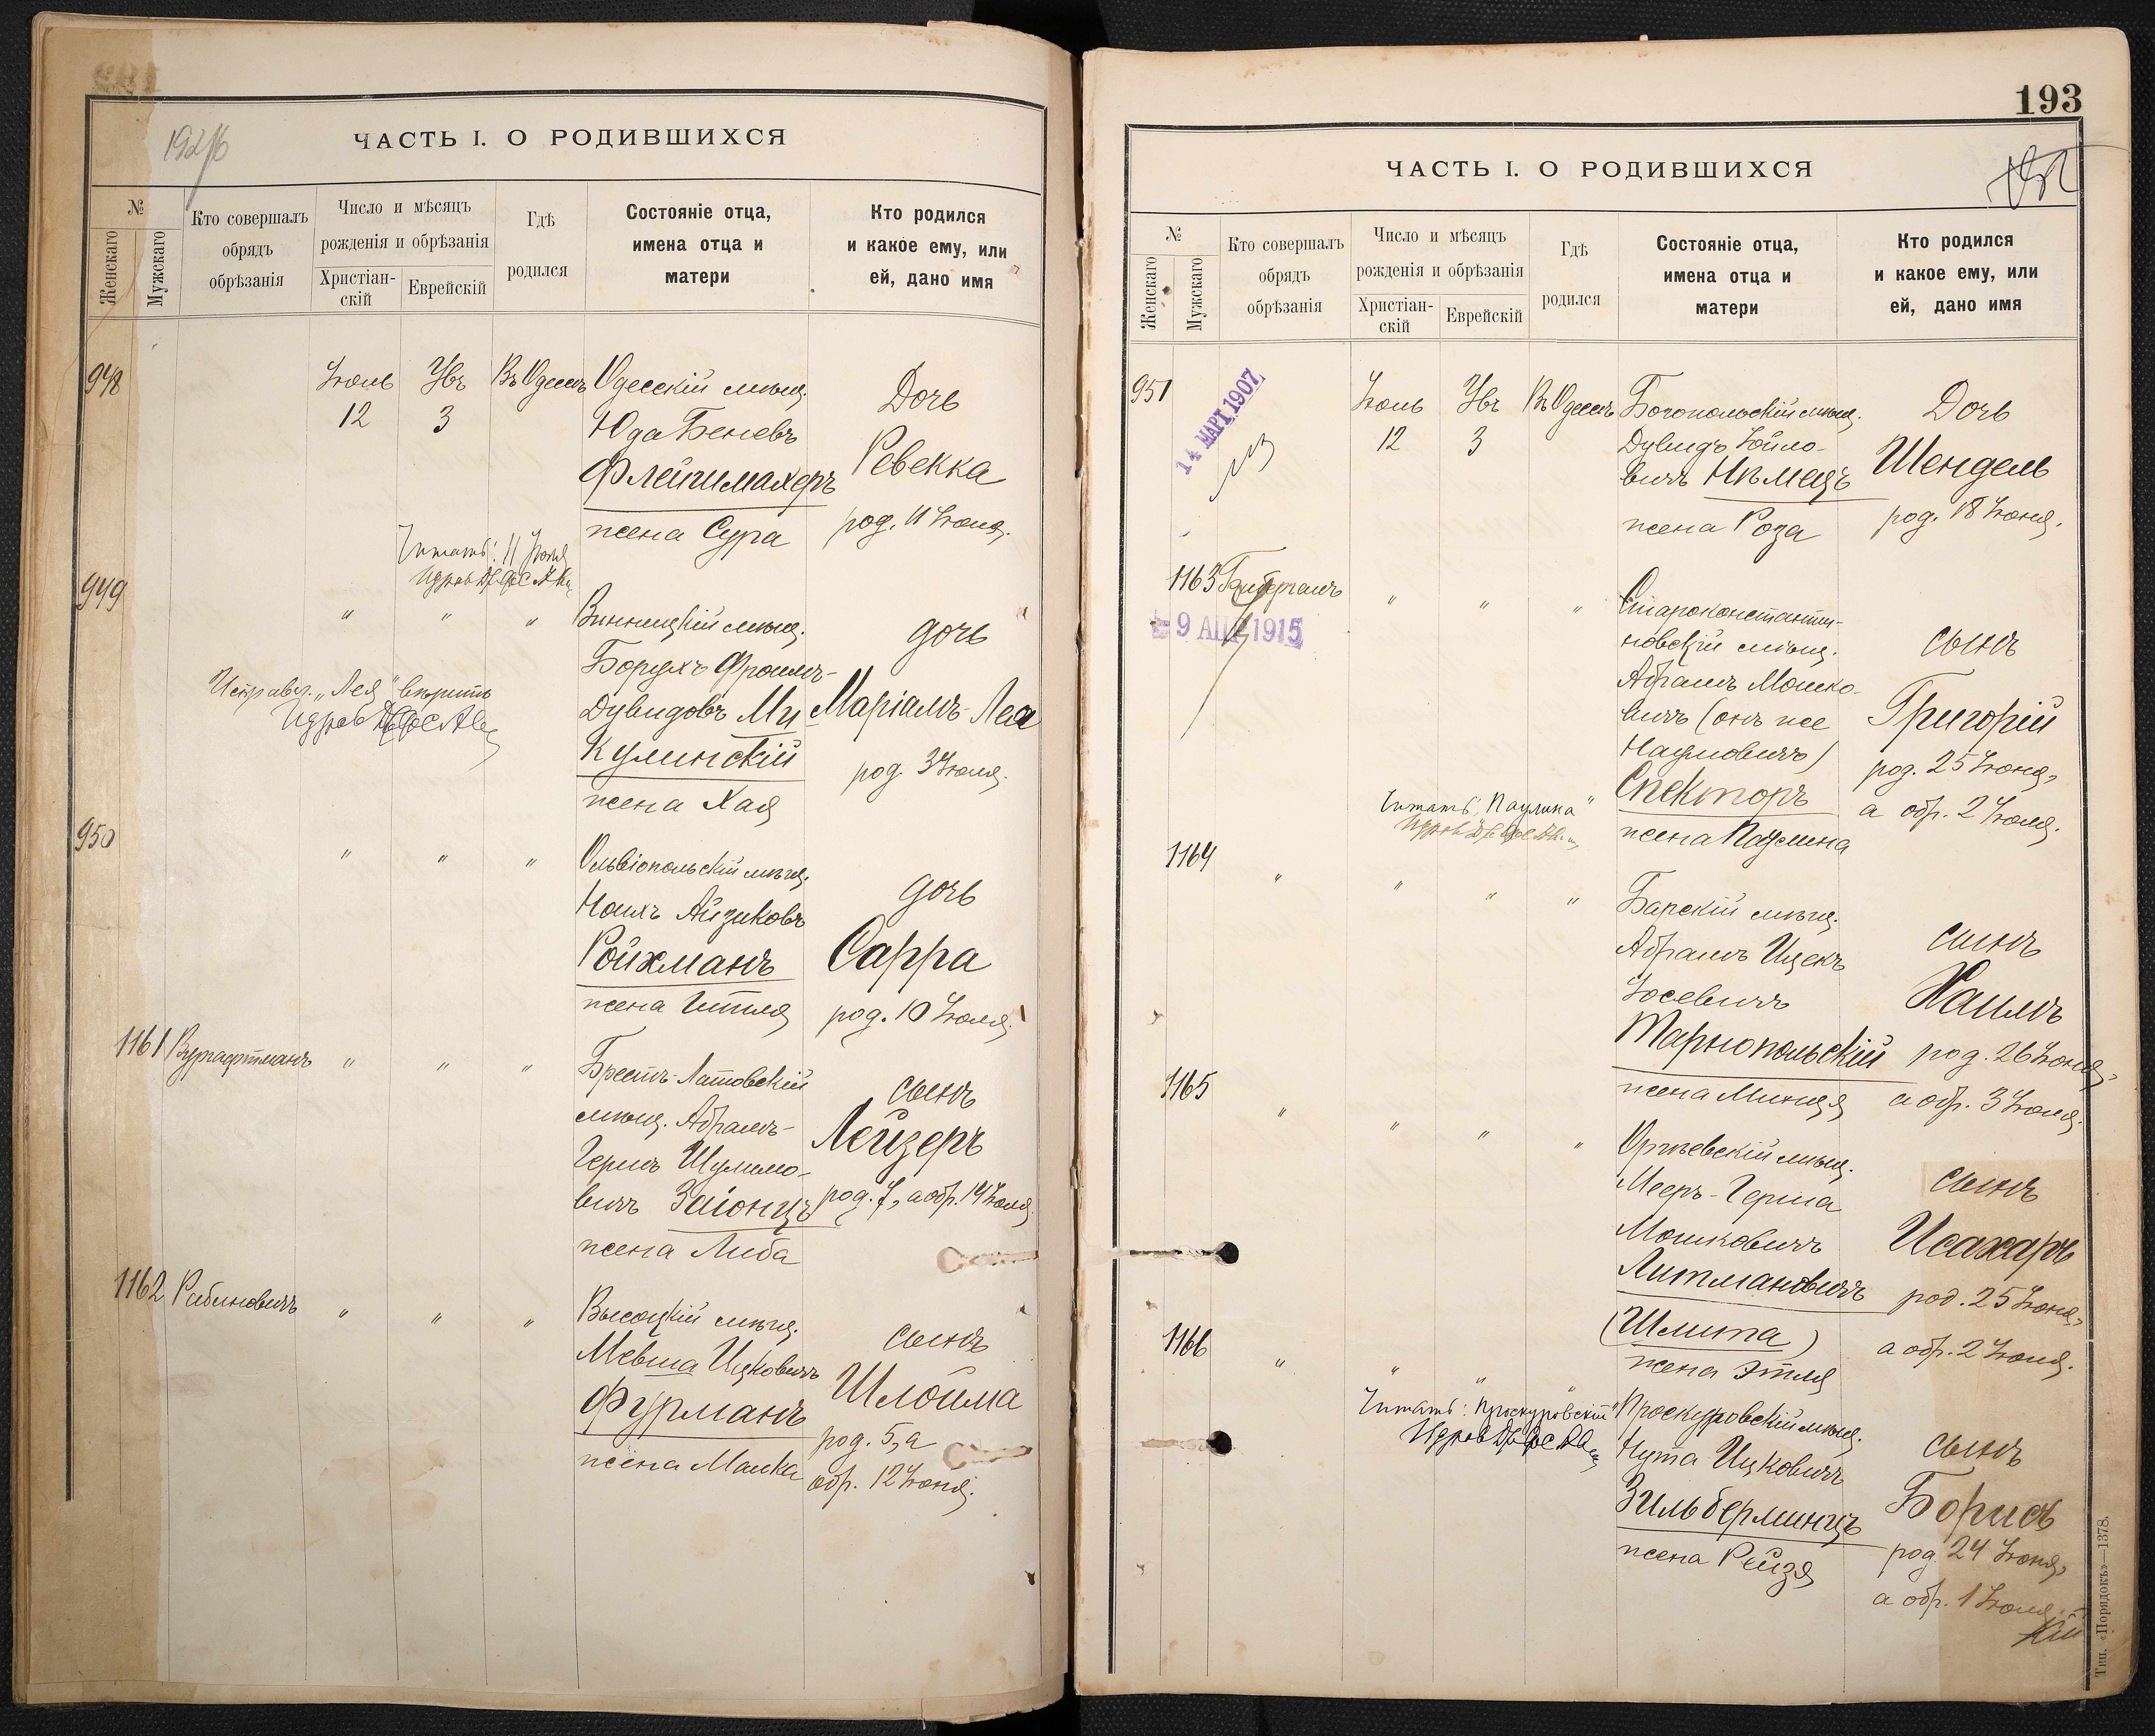 192/б
ЧАСТЬ I. О РОДИВШИХСЯ
№
Женскаго
Мужскаго
Кто совершалъ
обрядъ
обрѣзанія
Число и мѣсяцъ
рожденія и обрѣзанія
Христіан-
скій
Еврейскій
Гдѣ
родился
Состояніе отца,
имена отца и
матери
Кто родился
и какое ему, или
ей, дано имя
948
Іюль
12
Увъ
3
Въ Одессѣ
Одесскій мѣщ.
Юда Беневъ
Флейшмахеръ
жена Сура
Дочь
Ревекка
род. 11 Іюня.
Читать: 11 Іюня
949
" " "
Винницкій мѣщ.
Борухъ Фроимъ-
Дувидовъ Му
кулинскій
жена Хая
дочь
Маріамъ-Леа
род. 3 Іюля.
Исправл. „Лея" вѣрить
950
" " "
Ольвіопольскій мѣщ.
Ноихъ Айзиковъ
Ройхманъ
жена Гитля
дочь
Сарра
род. 10 Іюля.
1161
Вургафтманъ
" " "
Брестъ-Латовскій
мѣщ. Абрамъ-
Гершъ Шулимо-
вичъ Заіонцъ
жена Либа
сынъ
Лейзеръ
род. 7, а обр. 14 Іюля
1162
Рабиновичъ
" " "
Высоцкій мѣщ.
Мевша Ицковичъ
Фурманъ
жена Малка
сынъ
Шлойма
род. 5, а
обр. 12 Іюня.
193
ЧАСТЬ I. О РОДИВШИХСЯ
№
Женскаго
Мужскаго
Кто совершалъ
обрядъ
обрѣзанія
Число и мѣсяцъ
рожденія и обрѣзанія
Христіан-
скій
Еврейскій
Гдѣ
родился
Состояніе отца,
имена отца и
матери
Кто родился
и какое ему, или
ей, дано имя
951
14 МАРТ 1907
Іюль
12
Увъ
3
Въ Одессѣ
Богопольскій мѣщ.
Дувидъ Іойло-
вичъ Нѣмецъ
жена Роза
Дочь
Шендель
род. 18 Іюня.
1163
9 АПР 1915
" " "
Староконстанти-
новскій мѣщ.
Абрамъ Мошко-
вичъ (онъ же
Наумовичъ)
Спекторъ
жена Паулина
сынъ
Григорій
род. 25 Іюня,
а обр. 2 Іюля.
Читать: „Паулина"
1164
" " " "
Барскій мѣщ.
Абрамъ Ицекъ
Іосевичъ
Тарнопольскій
жена Минця
сынъ
Хаимъ
род. 26 Іюня,
а обр. 3 Іюля.
1165
" " " "
Оргѣевскій мѣщ.
Мееръ-Герша
Мошковичъ
Литмановичъ
(Шлита)
жена Этля
сынъ
Исахаръ
род. 25 Іюня,
а обр. 2 Іюля.
1166
" " " "
Читать: „Проскуровскій"
Проскуровскій мѣщ.
Нута Ицковичъ
Зильберминцъ
жена Рейзя
сынъ
Борисъ
род. 24 Іюня,
а обр. 1 Іюля.
Тип. «Порядокъ»—1378.